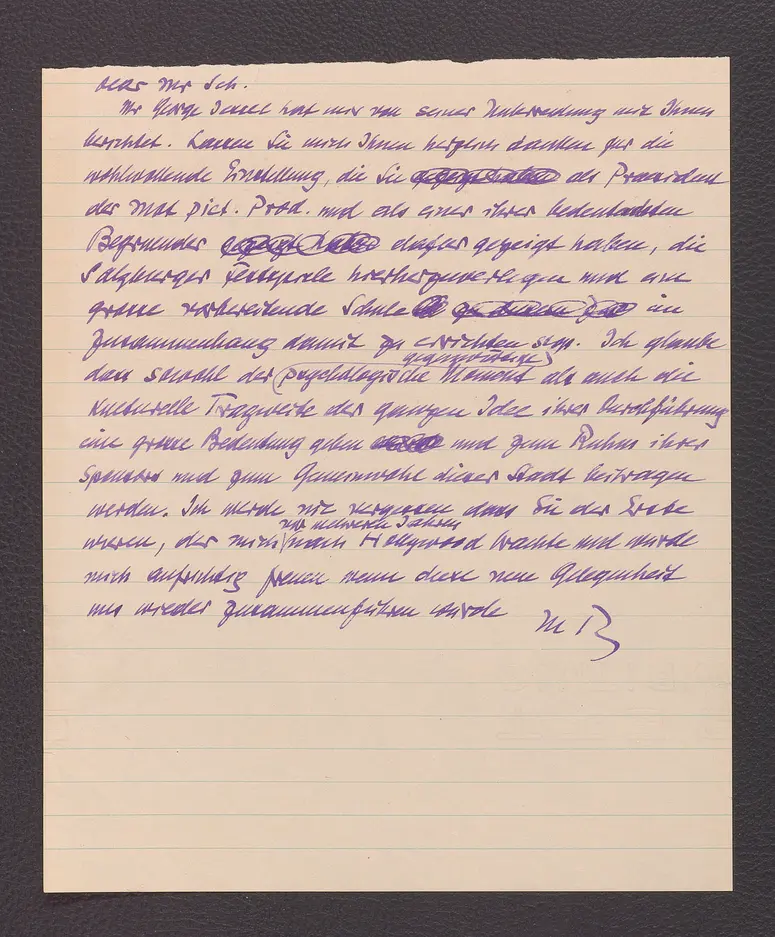 Dear Mr Sch.
Mr George Jessel hat mir von seiner Unterredung mit Ihnen
berichtet. Lassen Sie mich Ihnen herzlich danken fur die
wohlwollende Einstellung, die Sie als Praesident
der Mot pict. Prod. und als einer ihrer bedeutendsten
Begruender dafur gezeigt haben, die
Salzburger Festspiele hierherzuverlegen und eine
grosse vorbereitende Schule im
Zusammenhang damit zu errichten stop. Ich glaube
gegenwärtige
dass sowohl der psychologische Moment als auch die
kulturelle Tragweite der ganzen Idee ihrer Durchführung
eine grosse Bedeutung geben und zum Ruhm ihrer
Sponsors und zum Gemeinwohl dieser Stadt beitragen
werden. Ich werde nie vergessen dass Sie der Erste
vor mehreren Jahren
waren, der mich nach Hollywood brachte und wurde
mich aufrichtig freuen wenn diese neue Gelegenheit
uns wieder zusammenführen wurde
M R